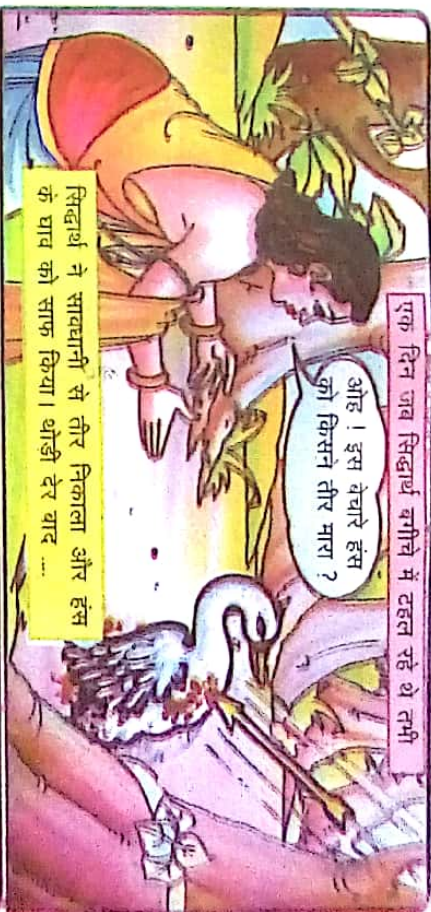 एक दिन जब सिद्धार्थ बगीचे में टहल रहे थे तभी
ओह ! इस बेचारे हंस
को किसने तीर मारा ?
सिद्धार्थ ने सावधानी से तीर निकाला और हंस
के घाव को साफ किया। थोड़ी देर बाद ....